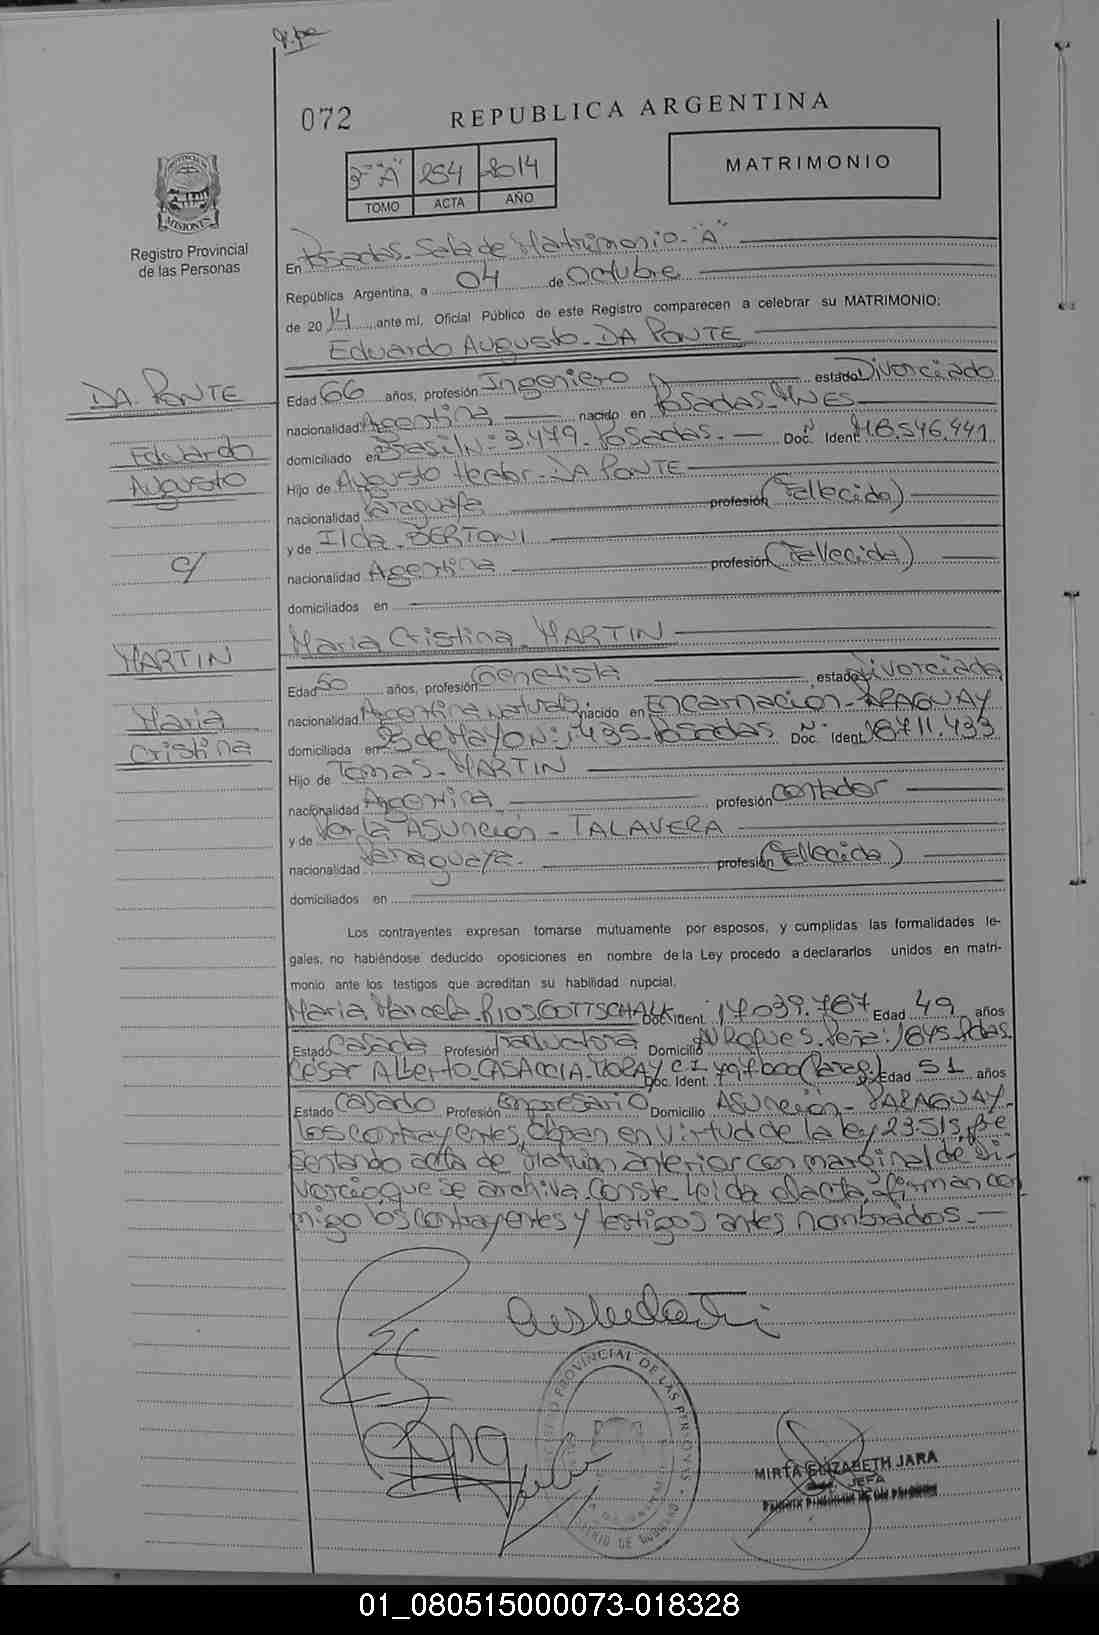 072
REPUBLICA ARGENTINA
3º "A" 254 2014
TOMO ACTA AÑO
MATRIMONIO
PROVINCIA DE
MISIONES
Registro Provincial
de las Personas
En Posadas. Sala de Matrimonio. "A"
República Argentina, a 04 de Octubre
de 2014 ante mí, Oficial Público de este Registro comparecen a celebrar su MATRIMONIO:
Eduardo Augusto. DA PONTE
DA PONTE
Eduardo
Augusto
c/
MARTIN
Maria
Cristina
Edad 66 años, profesión Ingeniero estado Divorciado
nacionalidad Argentina nacido en Posadas. MNES
domiciliado en Brasil Nº 3.479. Posadas. Doc. Ident. M8.546.441
Hijo de Augusto Hector. DA PONTE
nacionalidad Paraguaya profesión (Fallecido)
y de Ilda. BERTONI
nacionalidad Argentina profesión (Fallecida)
domiciliados en
Maria Cristina. MARTIN
Edad 50 años, profesión Genetista estado Divorciada
nacionalidad Argentina nacido en Encarnación. PARAGUAY
domiciliada en 25 de Mayo Nº 1.435. Posadas Doc. Ident. 16711.433
Hijo de Tomas. MARTIN
nacionalidad Argentina profesión contador
y de Asunción - TALAVERA
nacionalidad Paraguaya. profesión (Fallecida)
domiciliados en
Los contrayentes expresan tomarse mutuamente por esposos, y cumplidas las formalidades le-
gales, no habiéndose deducido oposiciones en nombre de la Ley procedo a declararlos unidos en matri-
monio ante los testigos que acreditan su habilidad nupcial.
Maria Marcela. RIOS GOTTSCHALK Doc. Ident. 17039.767 Edad 49 años
Estado Casada Profesión Traductora Domicilio AV Roque S. Peña: 1645. Pdas.
César Alberto. CASACCIA. Doc. Ident. C.I. (Parag.) Edad 51 años
Estado Casado Profesión Empresario Domicilio Asunción - PARAGUAY.
Los contrayentes, obran en virtud de la ley 23515, pre
sentando acta de Matrim anterior con marginal de di-
vorcio, que se archiva. Conste. Leida el acta, firman con
migo los contrayentes y testigos antes nombrados.
MIRTA ELIZABETH JARA
JEFA
01_080515000073-018328